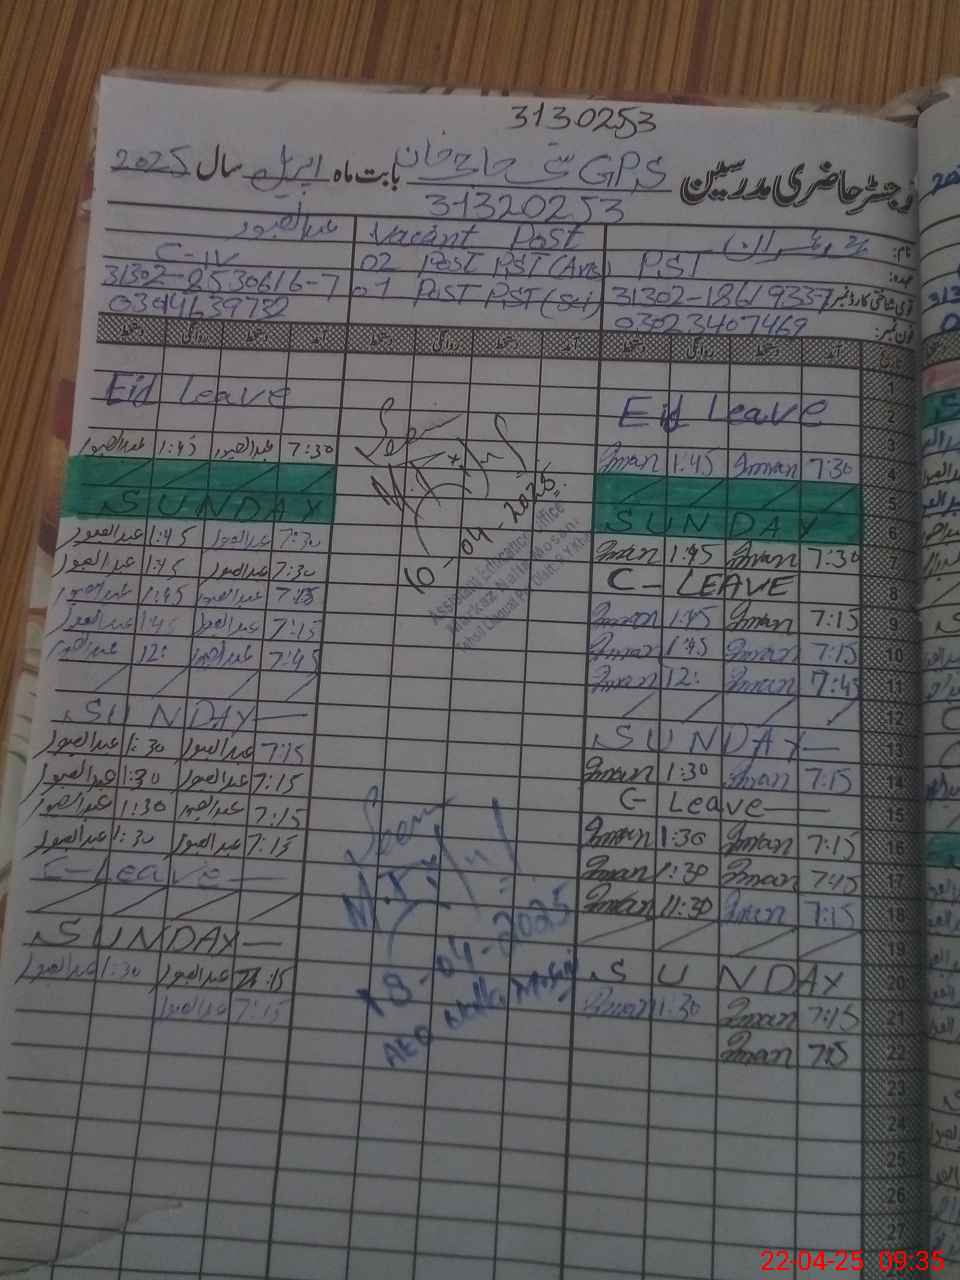 3130253
رجسٹر حاضری مدرسین GPS بستی حاجی خان بابت ماہ اپریل سال 2025
31320253
نام: Vacant Post عبدالصبور
عہدہ: PST 02 Post PST (Arts) C-IV
قومی شناختی کارڈ نمبر 31302-1861933-7 01 Post PST (Sci) 31302-8530616-7
فون نمبر: 03023407469 03041639732
آمد دستخط روانگی دستخط آمد دستخط روانگی دستخط آمد دستخط روانگی دستخط
1
2 Eid Leave Eid Leave
3
4 7:30 Iman 1:45 Iman 7:30 عبدالصبور 1:45 عبدالصبور
5
6 SUNDAY SUNDAY
7 7:30 Iman 1:45 Iman 7:30 عبدالصبور 1:45 عبدالصبور
8 C- LEAVE 7:30 عبدالصبور 1:45 عبدالصبور
9 7:15 Iman 1:45 Iman 7:15 عبدالصبور 1:45 عبدالصبور
10 7:15 Iman 1:45 Iman 7:15 عبدالصبور 1:45 عبدالصبور
11 7:45 Iman 12: Iman 7:45 عبدالصبور 12: عبدالصبور
12
13 SUNDAY SUNDAY
14 7:15 Iman 1:30 Iman 7:15 عبدالصبور 1:30 عبدالصبور
15 C- Leave 7:15 عبدالصبور 1:30 عبدالصبور
16 7:15 Iman 1:30 Iman 7:15 عبدالصبور 1:30 عبدالصبور
17 Iman 1:30 Iman 7:15 عبدالصبور 1:30 عبدالصبور
18 7:15 Iman 11:30 Iman C-Leave
19
20 SUNDAY SUNDAY
21 7:15 Iman 1:30 Iman 7:15 عبدالصبور 1:30 عبدالصبور
22 7:15 Iman 7:15 عبدالصبور
23
24
25
26
27
Seen
10-04-2025
Assistant Education Office
Markaz Nallka Mosan
Seen
18-04-2025
AEO Nallka Mosan
22-04-25 09:35